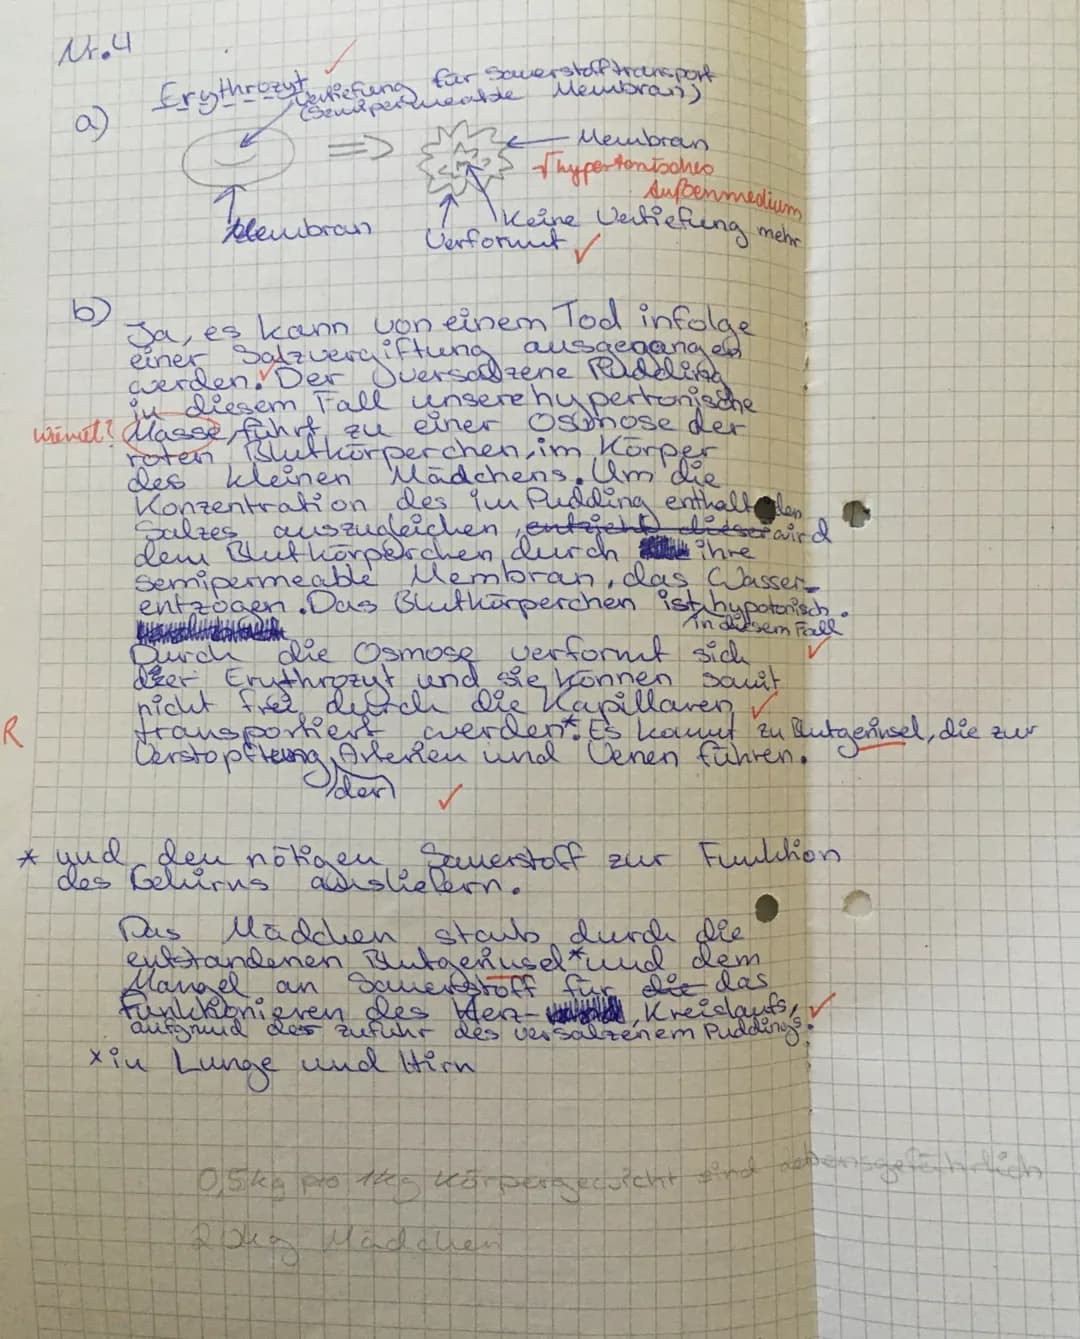 Nr. 4
a) Erythrozyt
Vertiefung für Sauerstofftransport
(Semipermeable Membran)
Membran
hypertonisches
Außenmedium
Membran
Verformt
Keine Vertiefung mehr
b) Ja, es kann von einem Tod infolge
einer Salzvergiftung ausgegangen
werden. Der versalzene Pudding
in diesem Fall unsere hypertonische
Masse, führt zu einer Osmose der
roten Blutkörperchen, im Körper
des kleinen Mädchens. Um die
Konzentration des im Pudding enthaltenden
Salzes auszugleichen, entzieht dieser wird
dem Blutkörperchen durch ihre
semipermeable Membran, das Wasser
entzogen. Das Blutkörperchen ist hypotonisch.
in diesem Fall
Durch die Osmose verformt sich
der Erythrozyt und sie können somit
nicht frei durch die Kapillaren
R
transportiert werden*. Es kommt zu Blutgerinsel, die zur
Verstopfung Arterien und Venen führen.
der
* und den nötigen Sauerstoff zur Funktion
des Gehirns ausliefern.
Das Mädchen starb durch die
entstandenen Blutgerinsel* und dem
Mangel an Sauerstoff für die das
Funktionieren des Herz-, Kreislaufs,
aufgrund der zufuhr des versalzenem Puddings.
* in Lunge und Hirn
0,5kg pro 1kg Körpergewicht sind lebensgefährlich
20kg Mädchen